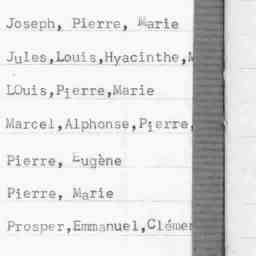 Joseph, Pierre, Marie
Jules,Louis,Hyacinthe,
LOuis,Pierre,Marie
Marcel,Alphonse,Pierre,
Pierre, Eugène
Pierre, Marie
Prosper,Emmanuel,